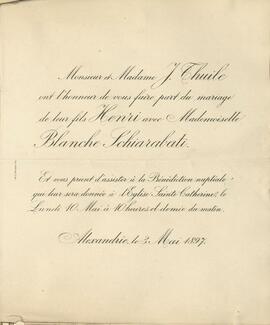 Monsieur et Madame J. Thuile
ont l'honneur de vous faire part du mariage
de leur fils Henri avec Mademoiselle
Blanche Schiarabati.
Et vous prient d'assister à la Bénédiction nuptiale
qui leur sera donnée à l'Eglise Sainte Catherine, le
Lundi 10 Mai à 10 heures et demie du matin.
Alexandrie, le 3 Mai 1897.